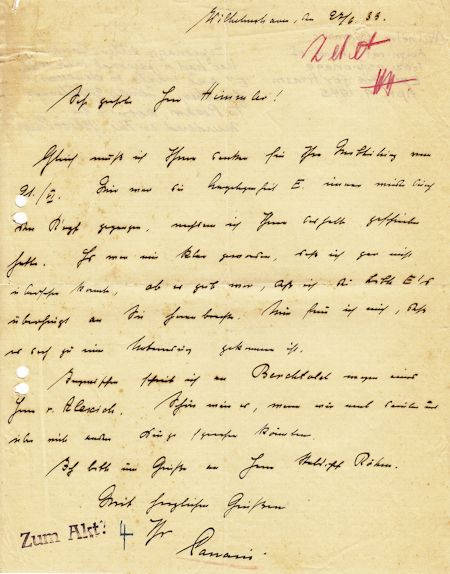 Wilhelmshaven, den 27/6. 33.
Sehr geehrter Herr Himmler!
Gleich muß ich Ihnen danken für Ihre Mitteilung vom
21./VI. Mir war die Angelegenheit E. immer wieder durch
den Kopf gegangen, nachdem ich Ihnen deshalb geschrieben
hatte. Es war mir klar geworden, daß ich gar nicht
übersehen konnte, ob es gut war, daß ich die Bitte E's
an Sie
er doch zu einer Unterredung gekommen ist.
Inzwischen schrieb ich an Bechtolsh wegen eines
Herrn v. Schön wäre es, wenn wir mal darüber und
über viele andere Dinge sprechen könnten.
Ich bitte um Grüße an Herrn Stabschef Röhm.
Mit herzlichen Grüßen
Ihr
Canaris.
Zum Akt! 4